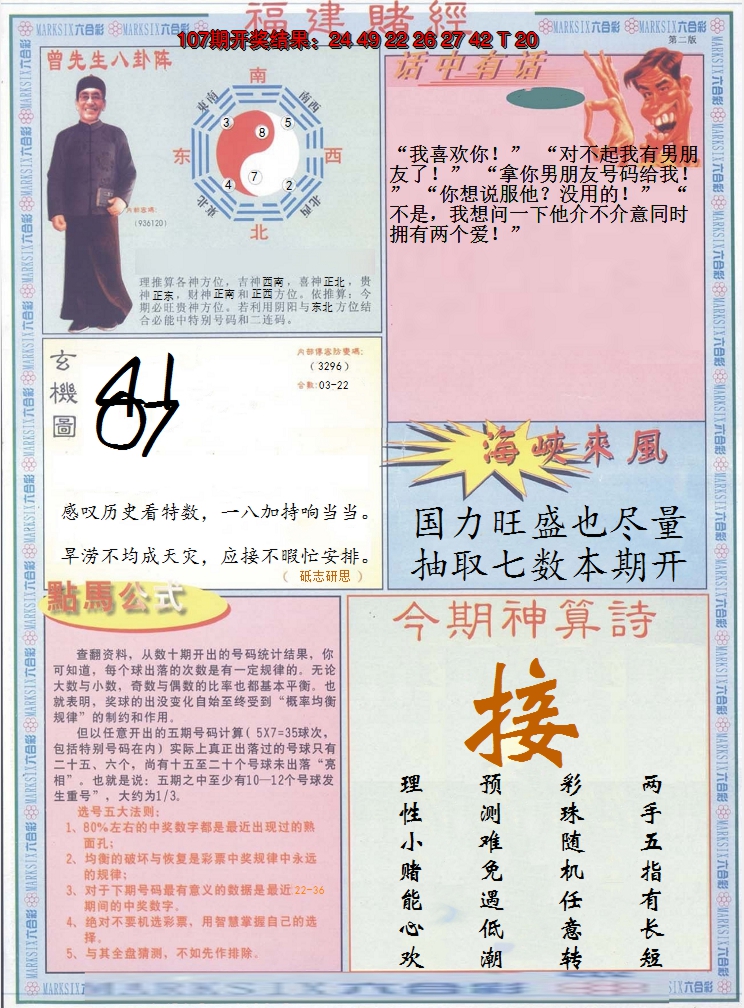 福建賭經
107期开奖结果：24 49 22 26 27 42 T 20
第二版
MARKSIX六合彩
曾先生八卦阵
南
东南
南西
东
西
3
8
5
4
7
2
東北
北西
北
内部密碼:
（936120）
理推算各神方位，吉神西南，喜神正北，贵
神正东，财神正南和正西方位。依推算：今
期必旺贵神方位。若利用阴阳与东北方位结
合必能中特别号码和二连码。
话中有话
“我喜欢你！” “对不起我有男朋
友了！” “拿你男朋友号码给我！
” “你想说服他？没用的！” “
不是，我想问一下他介不介意同时
拥有两个爱！”
玄機圖
（3296）
合数:03-22
感叹历史看特数，一八加持响当当。
旱涝不均成天灾，应接不暇忙安排。
（ 砥志研思 ）
海峽來風
国力旺盛也尽量
抽取七数本期开
點馬公式
查翻资料，从数十期开出的号码统计结果，你
可知道，每个球出落的次数是有一定规律的。无论
大数与小数，奇数与偶数的比率也都基本平衡。也
就表明，奖球的出没变化自始至终受到“概率均衡
规律”的制约和作用。
但以任意开出的五期号码计算( 5X7=35球次，
包括特别号码在内）实际上真正出落过的号球只有
二十五、六个，尚有十五至二十个号球未出落“亮
相”。也就是说：五期之中至少有10—12个号球发
生重号”，大约为1/3。
选号五大法则：
1、80%左右的中奖数字都是最近出现过的熟
面孔；
2、均衡的破坏与恢复是彩票中奖规律中永远
的规律；
3、对于下期号码最有意义的数据是最近22-36
期间的中奖数字。
4、绝对不要机选彩票，用智慧掌握自己的选
择。
5、与其全盘猜测，不如先作排除。
今期神算詩
接
理性小赌能心欢
预测难免遇低潮
彩珠随机任意转
两手五指有长短